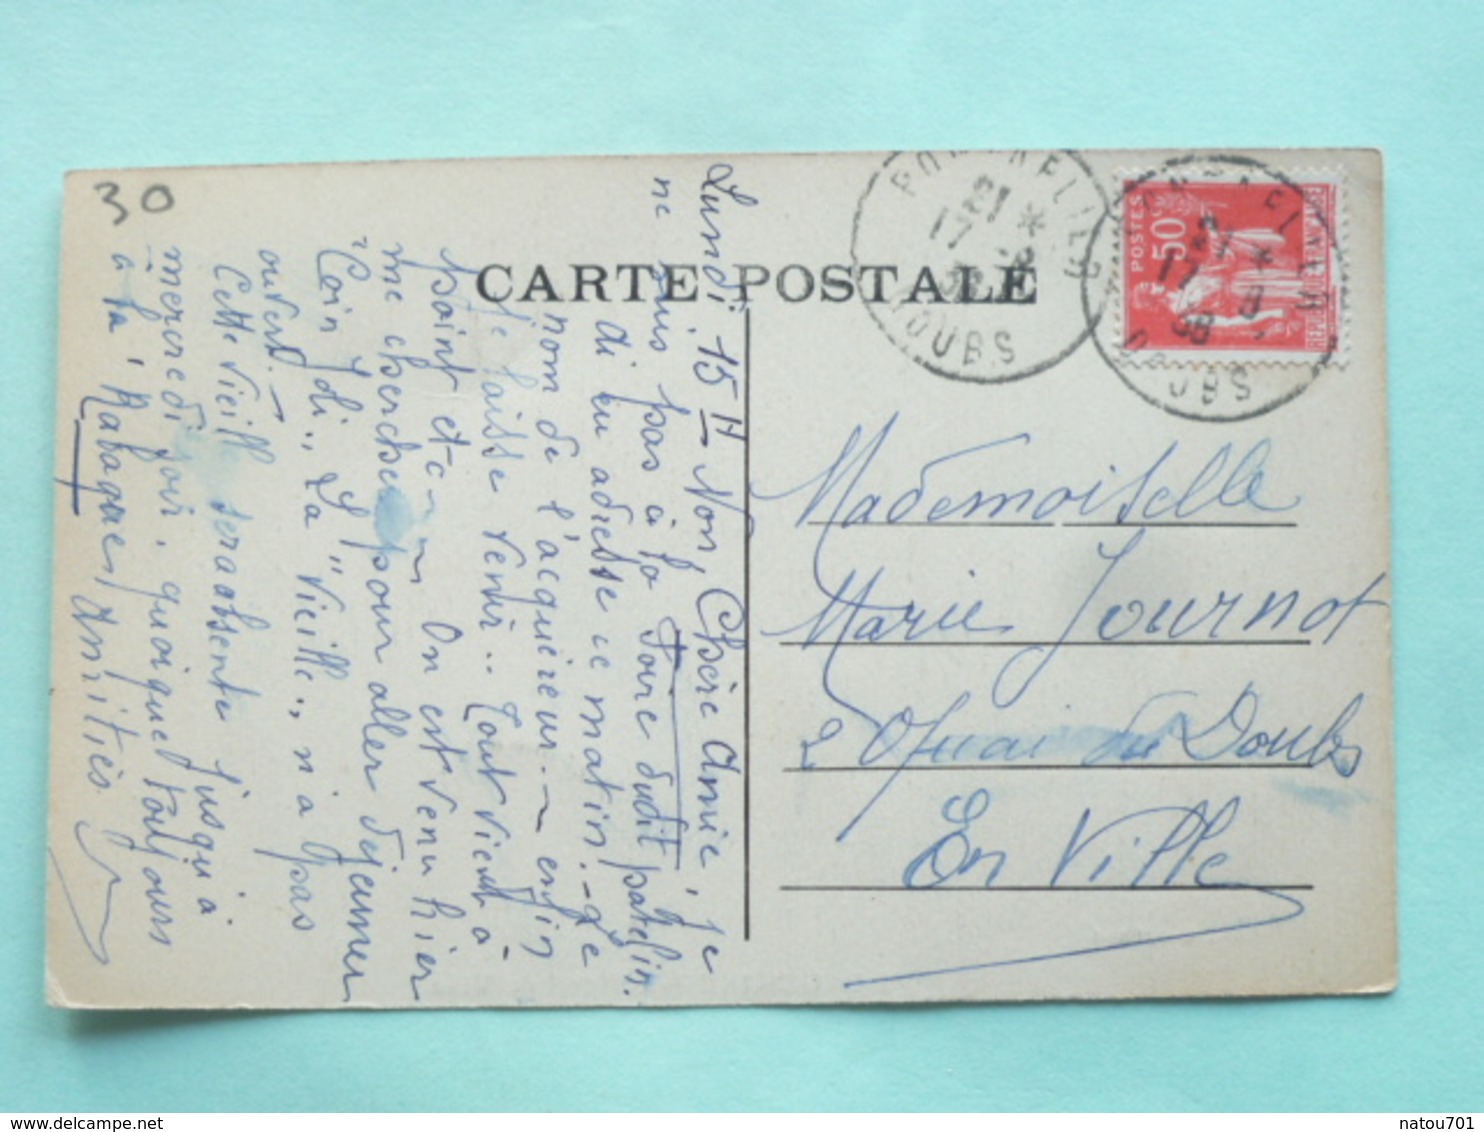 30
CARTE POSTALE
POSTES
50
17
DOUBS
17
38
DOUBS
Lundi, 15 H Non, Chère Amie, je
ne suis pas à la Foire dudit patelin.
di tu adresse ce matin. - ge
nom de l'acquiéreur. ~ enfin
je laisse venir.. Tout vient à
point etc ~ On est venu hier
me chercher pour aller déjeuner
"Coin Joli" La "Vieille", n'a pas
ouvert. -
Cette vieille sera absente jusqu'à
mercredi soir, quoique toujours
à la " Amitiés
Mademoiselle
Marie Journot
2 Quai du Doubs
En Ville
natou701